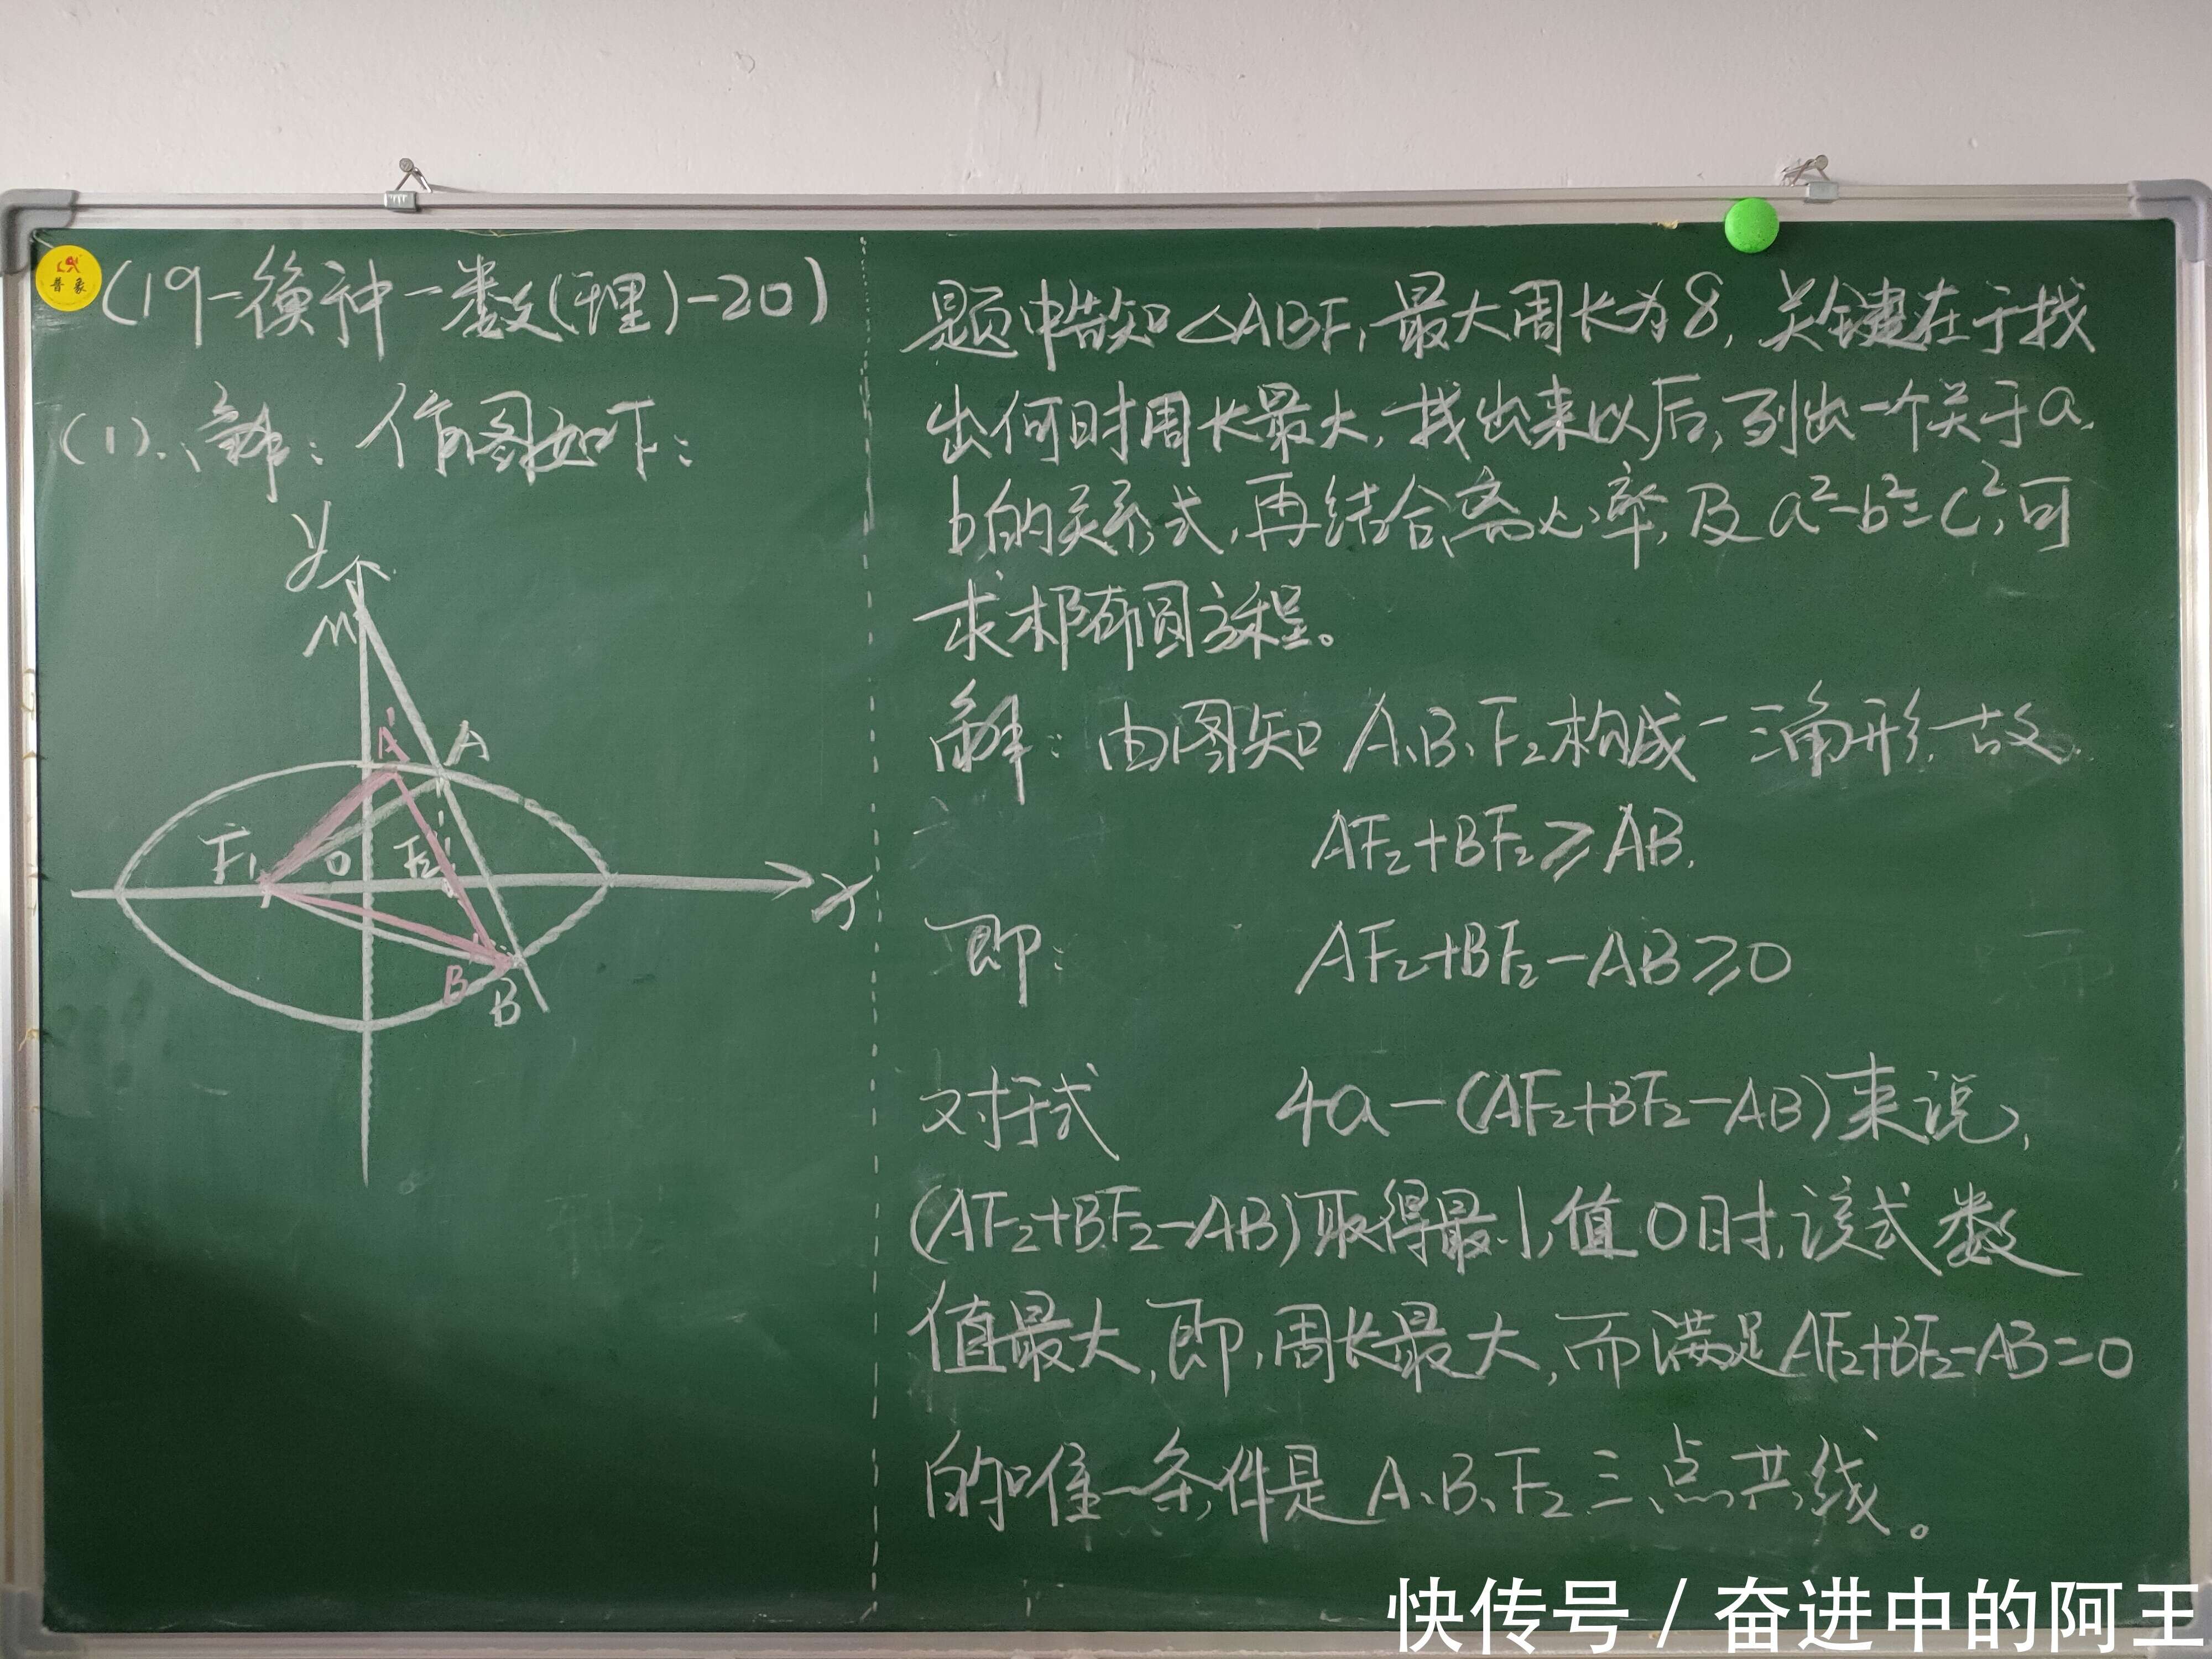 普象
(19-衡神-数(理)-20)
(1).解：作图如下：
y
M
A
A
F₁
O
F₂
x
B
B
题中告知△ABF₁最大周长为8，关键在于找
出何时周长最大，找出来以后，列出一个关于a、
b的关系式，再结合离心率，及a²-b²=c²，可
求椭圆方程。
解：由图知A、B、F₂构成一三角形，故
AF₂+BF₂≥AB.
即：AF₂+BF₂-AB≥0
对于式 4a-(AF₂+BF₂-AB)来说，
(AF₂+BF₂-AB)取得最小值0时，该式数
值最大，即，周长最大，而满足AF₂+BF₂-AB=0
的唯一条件是A、B、F₂三点共线。
快传号/奋进中的阿王